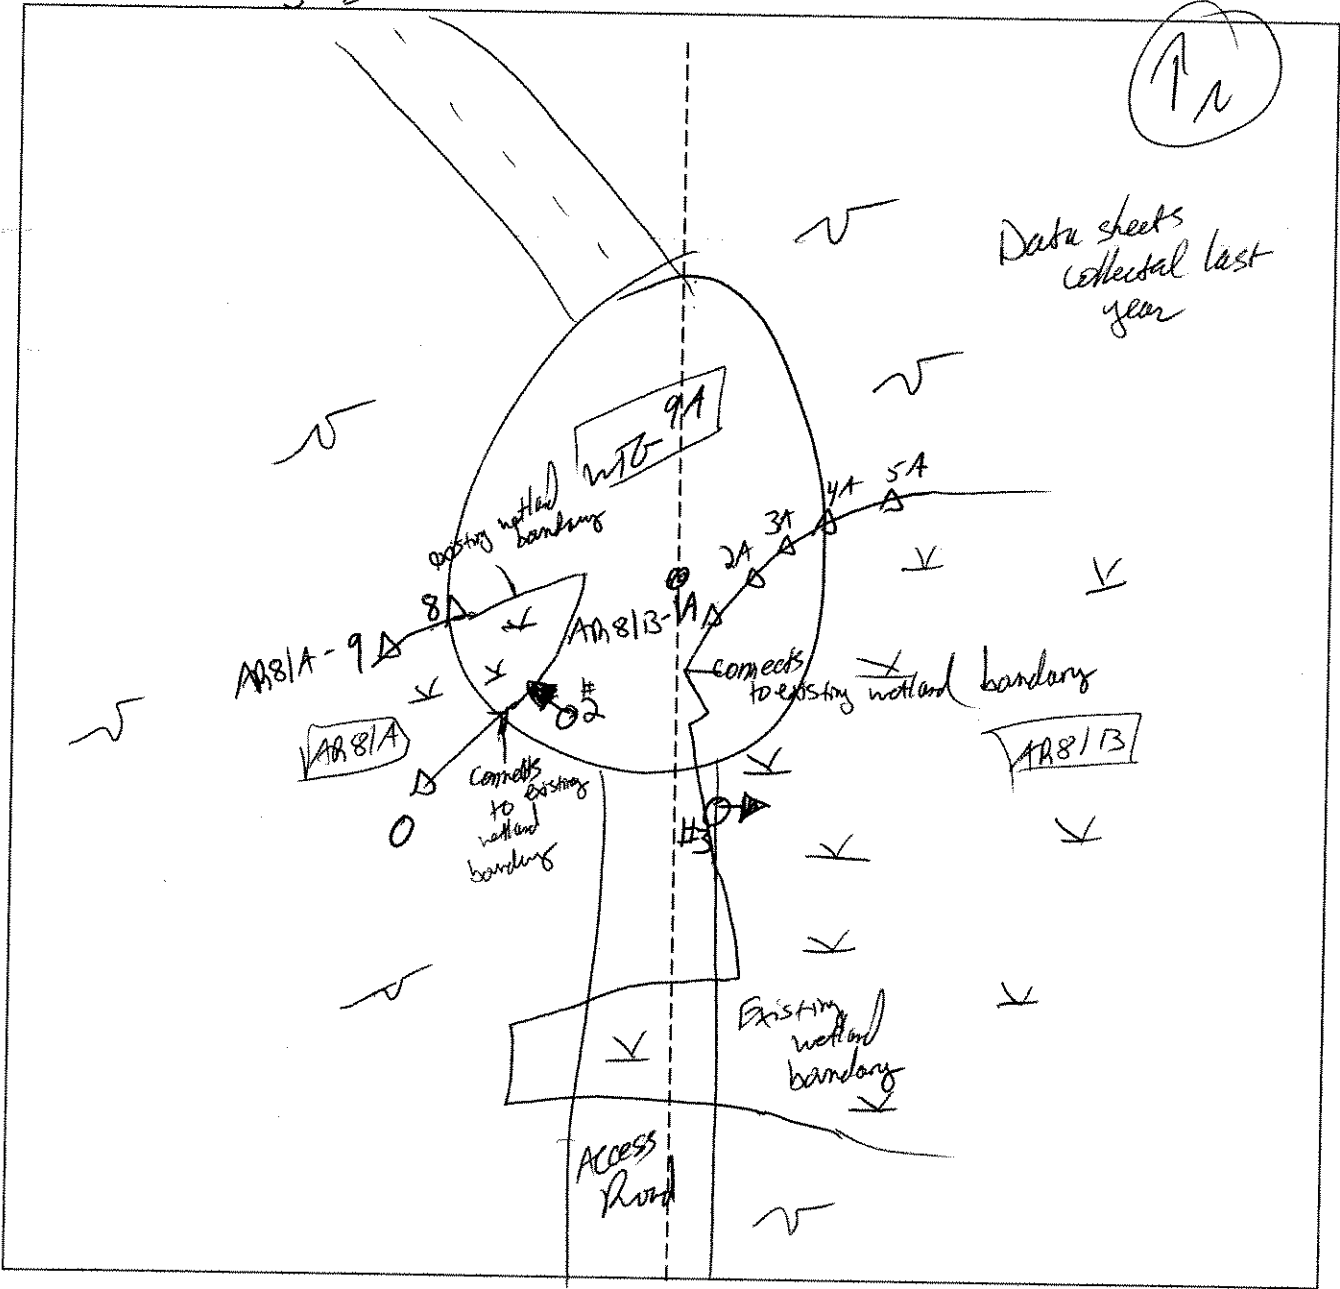 N
Data sheets
collected last
year
9A
WTG-
existing wetland
boundary
5A
4A
3A
2A
AR81B-1A
8
AR81A-9
connects
to existing wetland boundary
#2
AR81A
AR81B
Connects
to existing
wetland
boundary
#3
0
Existing
wetland
boundary
Access
Road